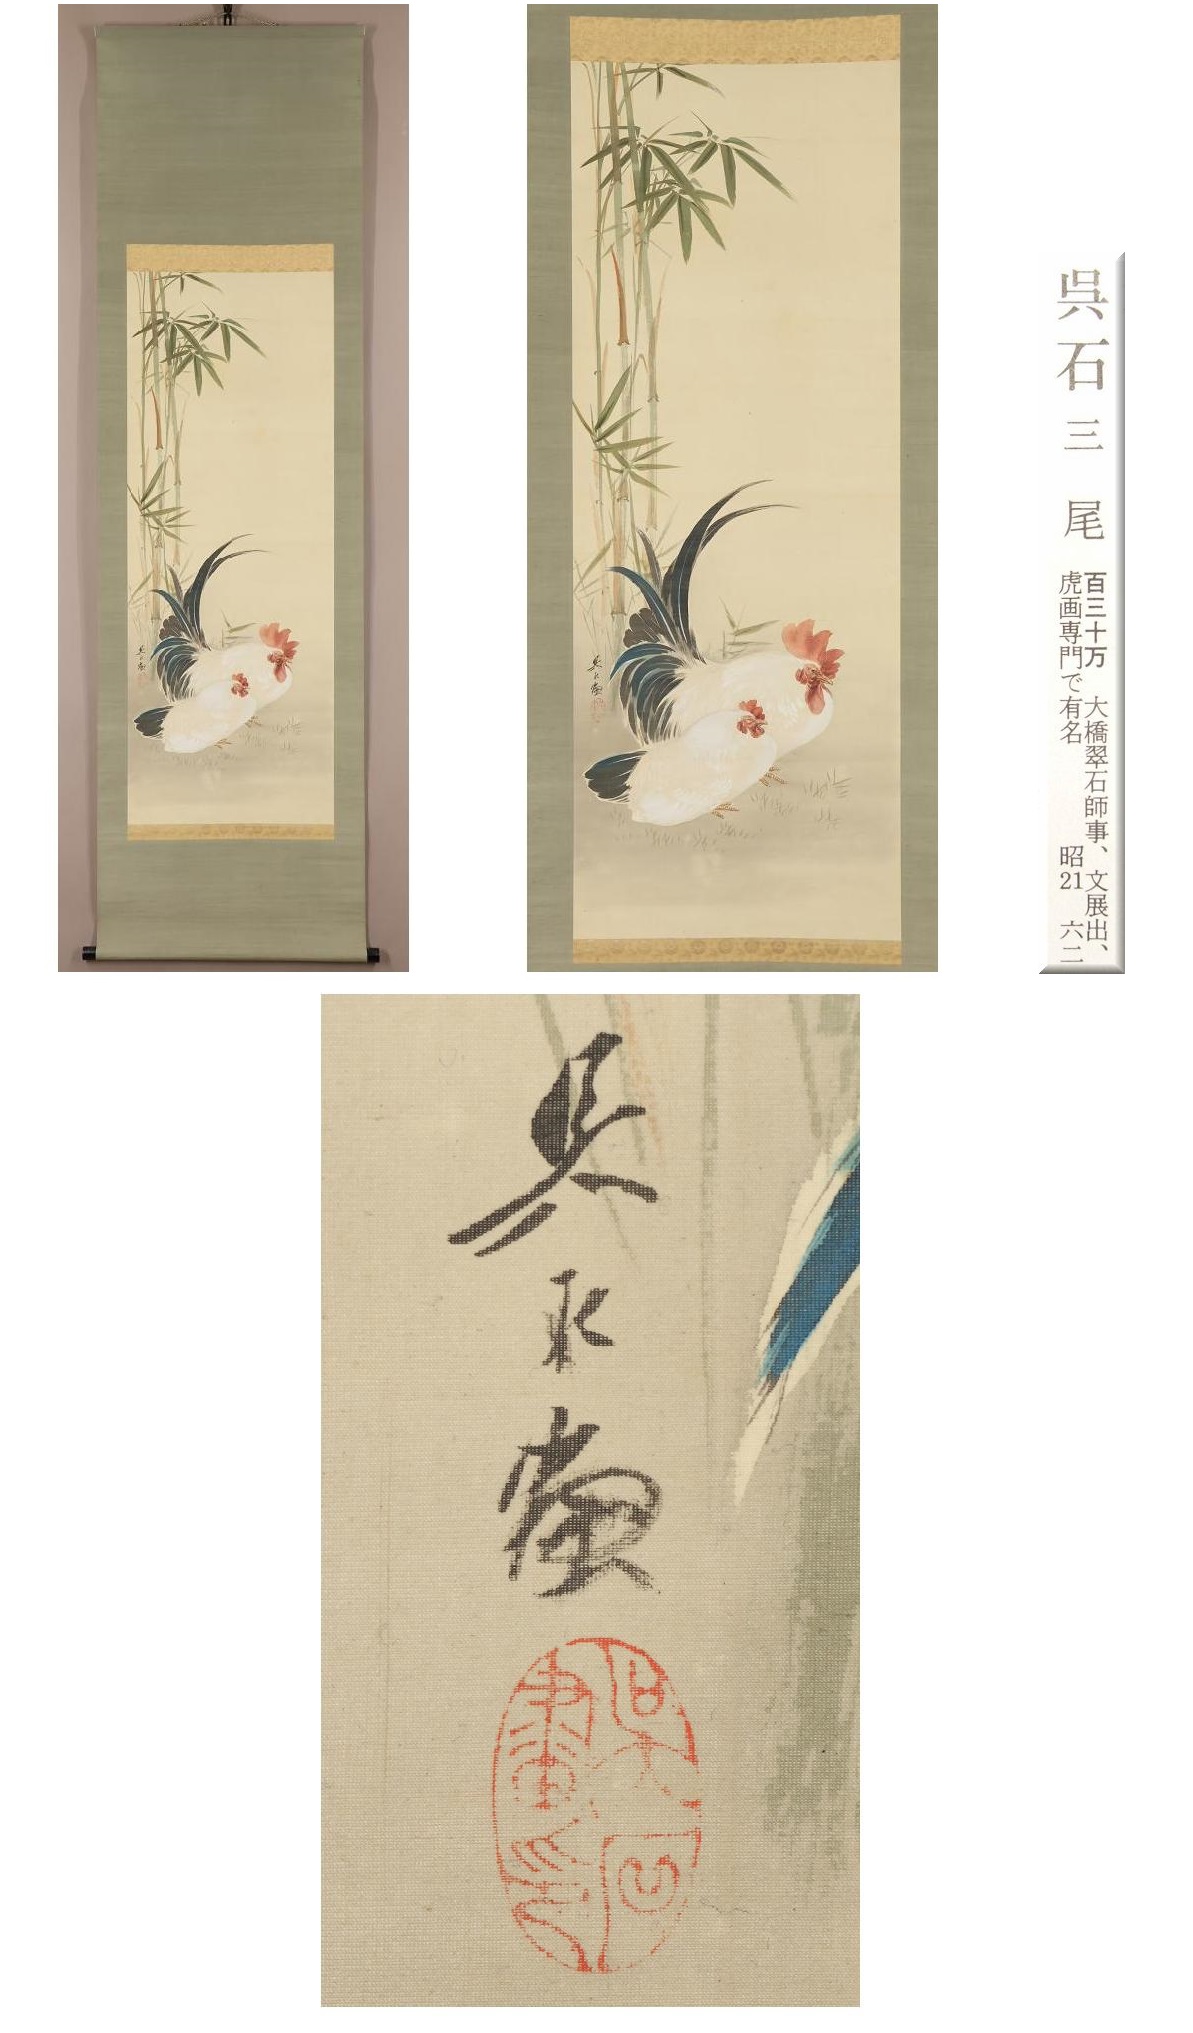 呉石 三尾
百三十万 大橋翠石師事、文展出、
虎画専門で有名 昭21 六二
呉石